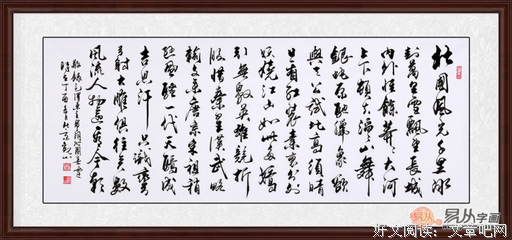 北國風光千里冰
封萬里雪飄望長城
内外惟餘莽莽大河
上下頓失滔滔山舞
銀蛇原馳蠟象欲
與天公試比高須晴
日看紅裝素裹分外
妖嬈江山如此多嬌
引無數英雄競折
腰惜秦皇漢武略
輸文采唐宗宋祖稍
遜風騷一代天驕成
吉思汗只識彎
弓射大雕俱往矣數
風流人物還看今朝
敬錄毛澤東主席詞沁園春雪
時在丁酉年
易从
易从字画
好文阅读：文章吧网